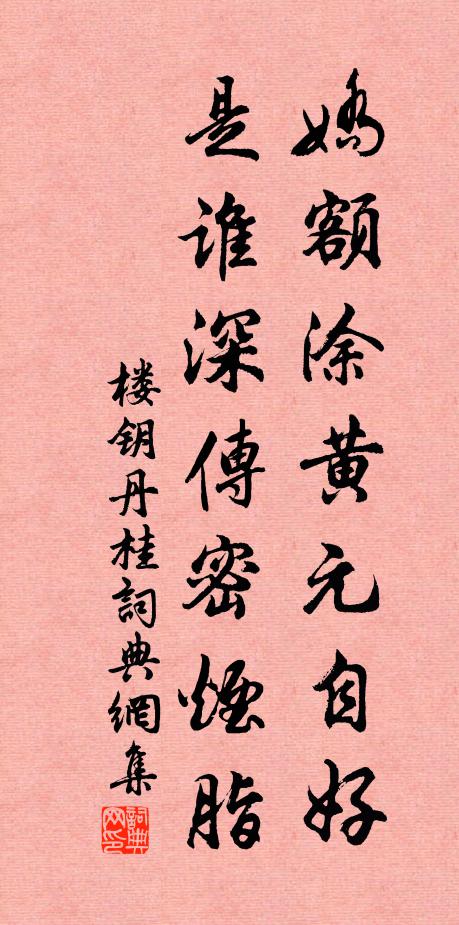 嬌額涂黃元自好
是誰深傳密煙脂
楼钥丹桂詞典網集
詞典网印